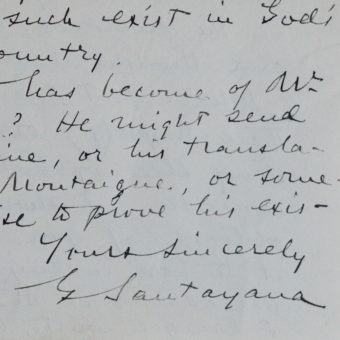 such exist in God's
ountry.
has become of Mr.
? He might send
ine, or his transla-
Montaigne, or some-
se to prove his exis-
Yours sincerely
G Santayana